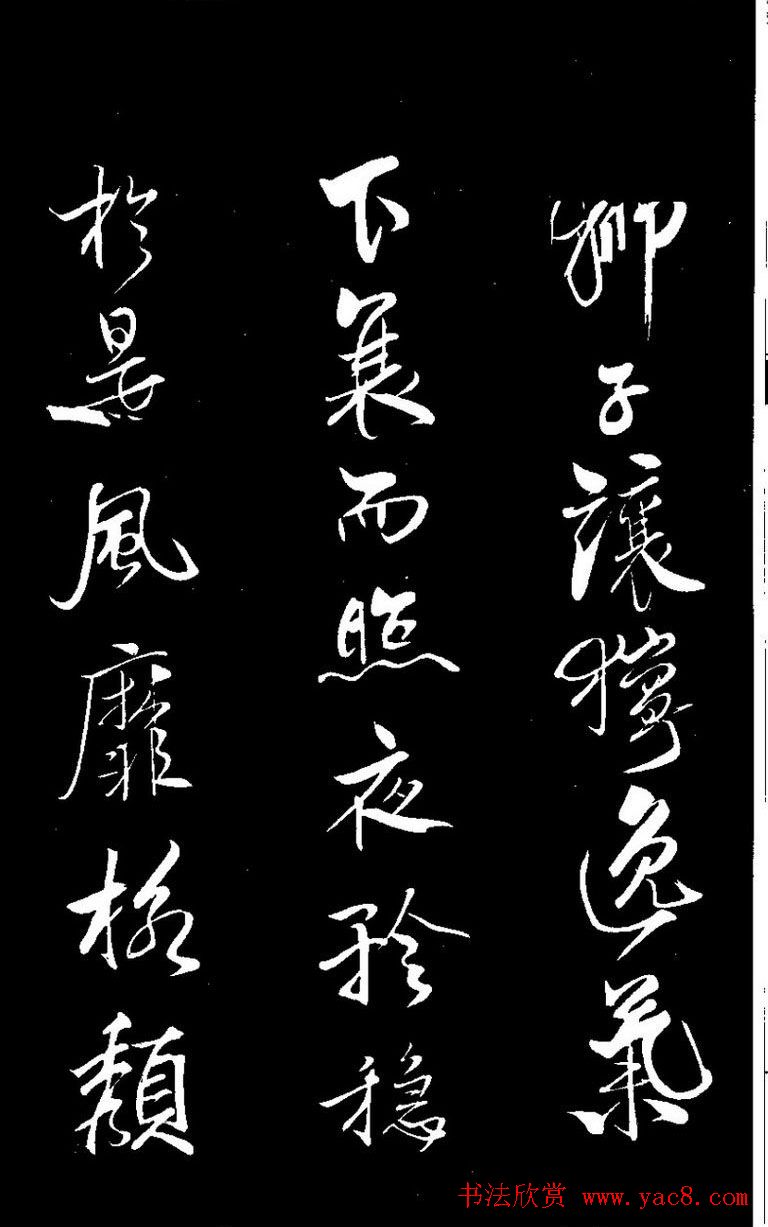 狮子讓獰逸氣
下襄而照夜矜穩
於晏風靡格類
书法欣赏 www.yac8.com